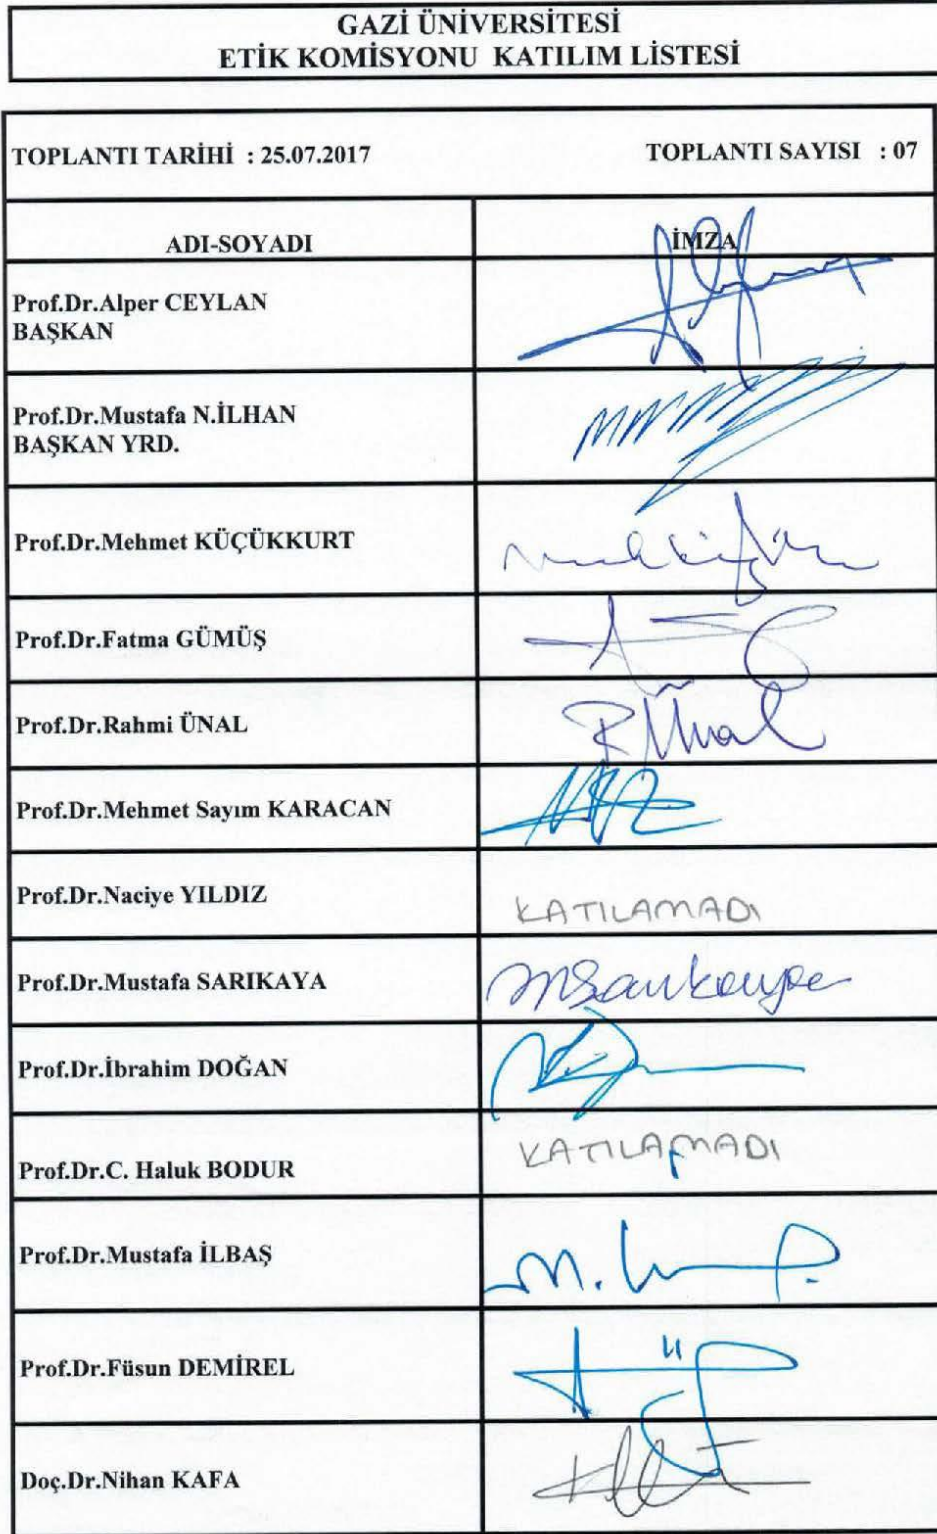 GAZİ ÜNİVERSİTESİ
ETİK KOMİSYONU KATILIM LİSTESİ
TOPLANTI TARİHİ : 25.07.2017 TOPLANTI SAYISI : 07
ADI-SOYADI İMZA
Prof.Dr.Alper CEYLAN
BAŞKAN
Prof.Dr.Mustafa N.İLHAN
BAŞKAN YRD.
Prof.Dr.Mehmet KÜÇÜKKURT
Prof.Dr.Fatma GÜMÜŞ
Prof.Dr.Rahmi ÜNAL
Prof.Dr.Mehmet Sayım KARACAN
Prof.Dr.Naciye YILDIZ KATILAMADI
Prof.Dr.Mustafa SARIKAYA
Prof.Dr.İbrahim DOĞAN
Prof.Dr.C. Haluk BODUR KATILAMADI
Prof.Dr.Mustafa İLBAŞ
Prof.Dr.Füsun DEMİREL
Doç.Dr.Nihan KAFA